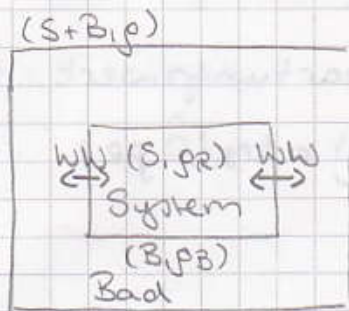 (S+B,ρ)
WW (S,ρR) WW
System
(B,ρB)
Bad